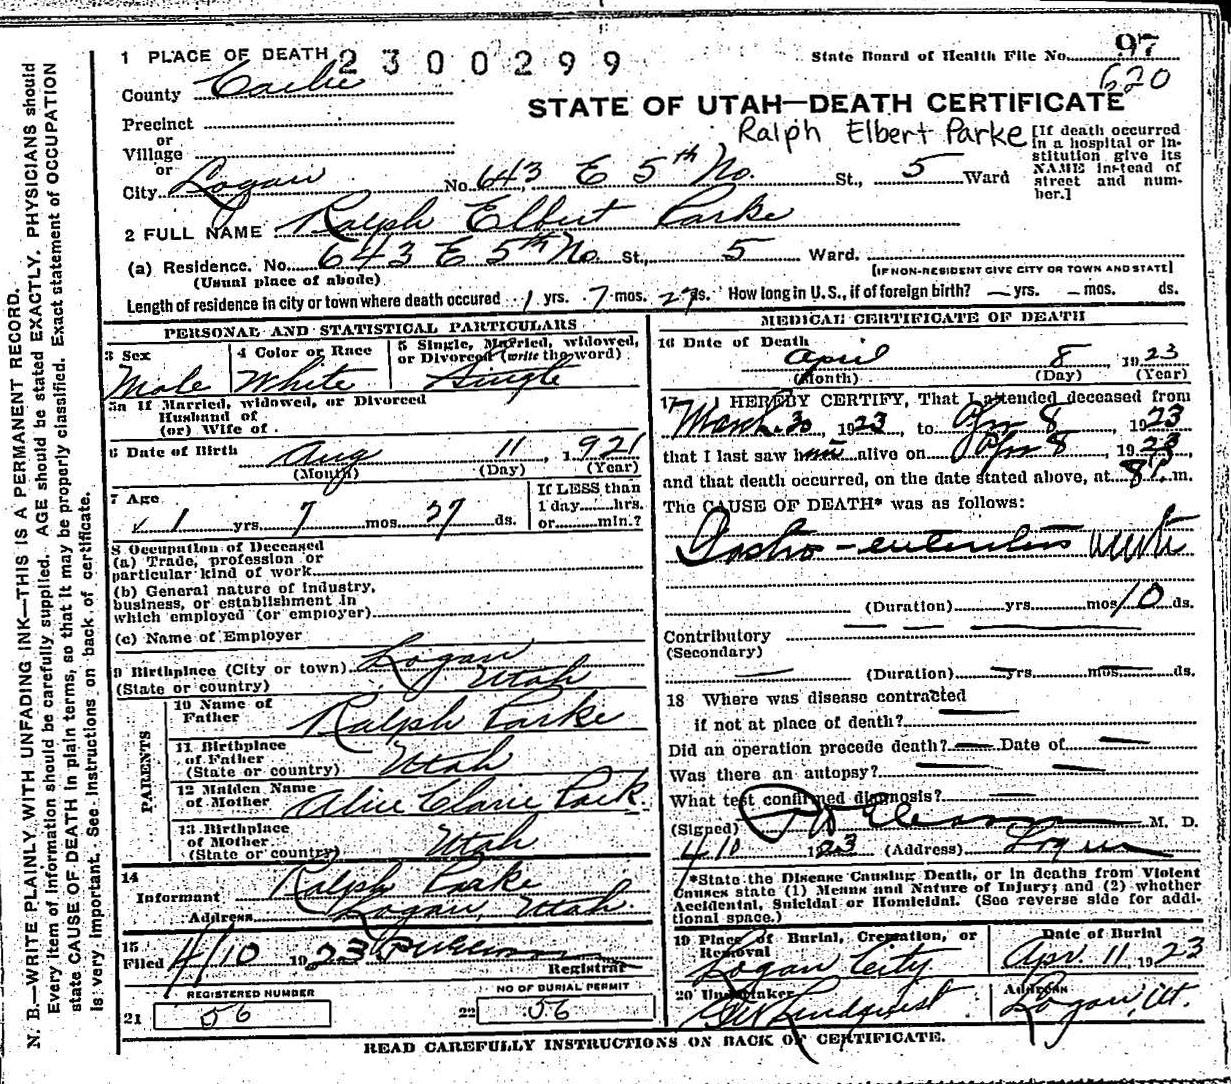 N. B.—WRITE PLAINLY WITH UNFADING INK—THIS IS A PERMANENT RECORD.
Every item of information should be carefully supplied. AGE should be stated EXACTLY. PHYSICIANS should
state CAUSE OF DEATH in plain terms, so that it may be properly classified. Exact statement of OCCUPATION
is very important. See instructions on back of certificate.
1 PLACE OF DEATH 2300299
State Board of Health File No. 97
620
County Cache
STATE OF UTAH—DEATH CERTIFICATE
Precinct
or
Village
or
Ralph Elbert Parke
[If death occurred
in a hospital or in-
stitution give its
NAME instead of
street and num-
ber.]
City Logan No. 643 E 5th No. St., 5 Ward
2 FULL NAME Ralph Elbert Parke
(a) Residence. No. 643 E 5th No St., 5 Ward.
(Usual place of abode)
[IF NON-RESIDENT GIVE CITY OR TOWN AND STATE]
Length of residence in city or town where death occured 1 yrs. 7 mos. 27 ds. How long in U. S., if of foreign birth? — yrs. — mos. ds.
PERSONAL AND STATISTICAL PARTICULARS
3 Sex
Male
4 Color or Race
White
5 Single, Married, widowed,
or Divorced (write the word)
Single
5a If Married, widowed, or Divorced
Husband of
(or) Wife of
6 Date of Birth Aug 11, 1921
(Month) (Day) (Year)
7 Age
1 yrs. 7 mos. 27 ds.
If LESS than
1 day hrs.
or min.?
8 Occupation of Deceased
(a) Trade, profession or
particular kind of work
(b) General nature of Industry,
business, or establishment in
which employed (or employer)
(c) Name of Employer
9 Birthplace (City or town) Logan
(State or country) Utah
PARENTS
10 Name of
Father Ralph Parke
11 Birthplace
of Father
(State or country) Utah
12 Maiden Name
of Mother Alice Clarie Park.
13 Birthplace
of Mother
(State or country) Utah
14
Informant Ralph Parke
Address Logan, Utah.
15
Filed 4/10 1923
Registrar
REGISTERED NUMBER
21 56
NO OF BURIAL PERMIT
22 56
MEDICAL CERTIFICATE OF DEATH
16 Date of Death
April 8, 1923
(Month) (Day) (Year)
17 I HEREBY CERTIFY, That I attended deceased from
March 30, 1923, to Apr 8, 1923
that I last saw him alive on Apr 8, 1923
and that death occurred, on the date stated above, at 8 P. m.
The CAUSE OF DEATH* was as follows:
Gastro-enteritis acute
(Duration) yrs. mos. 10 ds.
Contributory
(Secondary)
(Duration) yrs. mos. ds.
18 Where was disease contracted
if not at place of death?
Did an operation precede death? — Date of —
Was there an autopsy?
What test confirmed diagnosis? —
(Signed) M. D.
4/10 1923 (Address) Logan
*State the Disease Causing Death, or in deaths from Violent
Causes state (1) Means and Nature of Injury; and (2) whether
Accidental, Suicidal or Homicidal. (See reverse side for addi-
tional space.)
19 Place of Burial, Cremation, or
Removal
Logan City
Date of Burial
Apr. 11, 1923
20 Undertaker
Lindquist
Address
Logan, Ut.
READ CAREFULLY INSTRUCTIONS ON BACK OF CERTIFICATE.